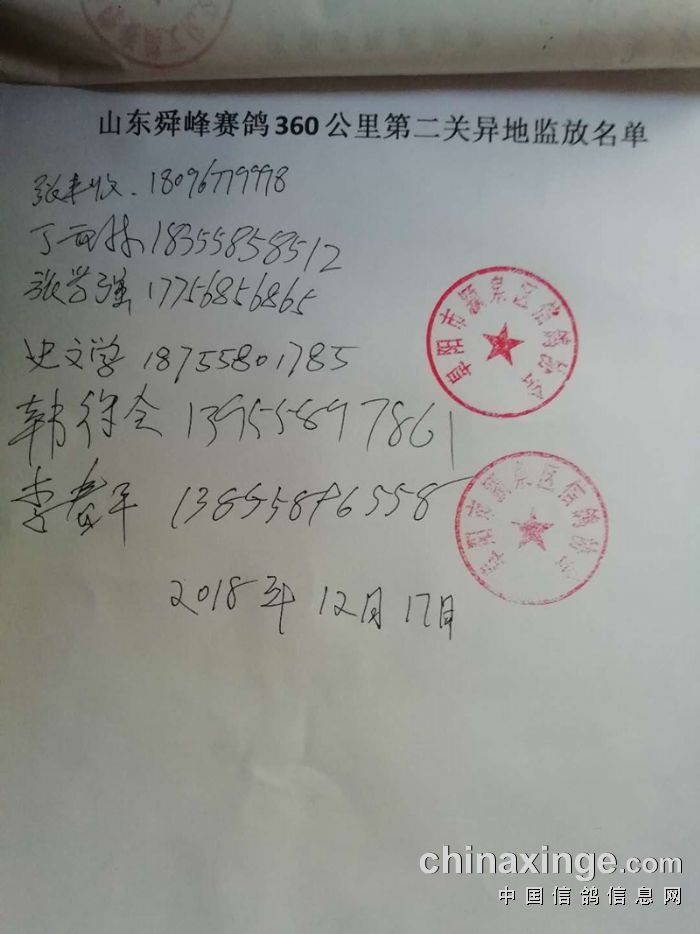 山东舜峰赛鸽360公里第二关异地监放名单
张丰收. 18096779998
丁 林 18355858512
张学强 17756856865
史文学 18755801785
韩徐全 13955897861
李春平 13855896558
2018年 12月 17日
阜阳市颍泉区信鸽协会
阜阳市颍泉区信鸽协会
chinaxinge.com
中国信鸽信息网